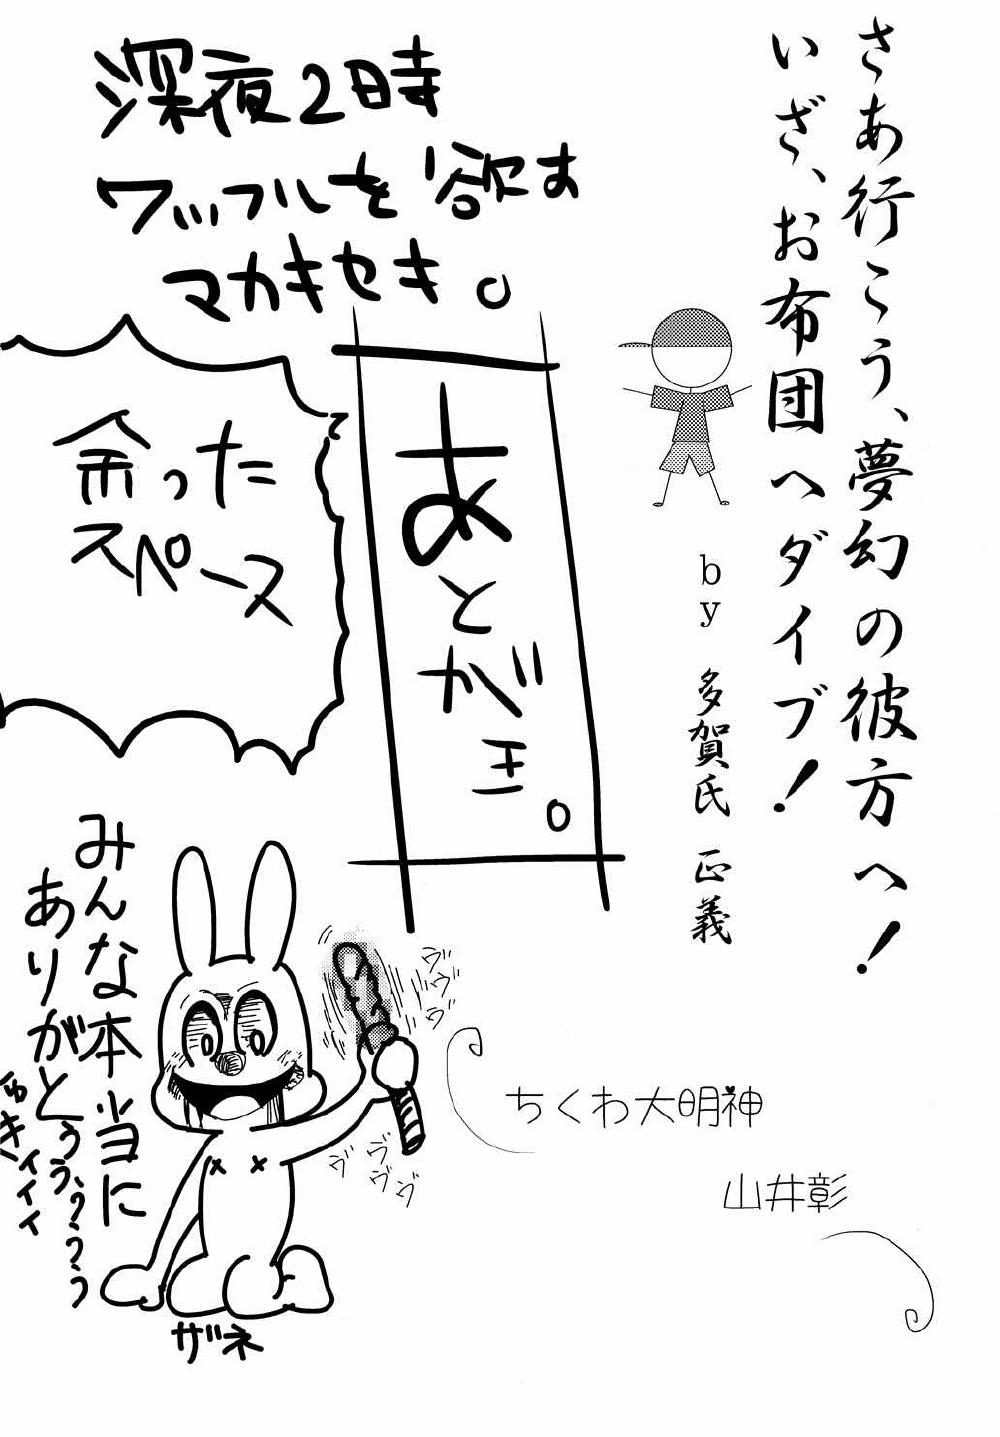 さあ行こう、夢幻の彼方へ!
いざ、お布団へダイブ!
by 多賀氏 正義
深夜2時
ワッフルを欲す
マカキセキ。
あとがき。
余った
スペース
みんな本当に
ありがとううう、うううう
ゆきィィィィ
ヴヴヴ
ヴヴヴヴ
ザネ
ちくわ大明神
山井彰